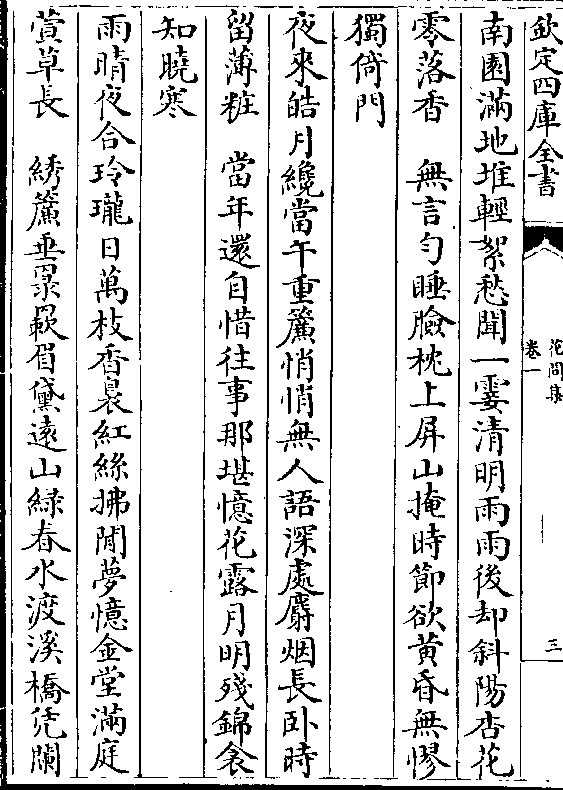 欽定四庫全書
花間集
卷一
三
南園滿地堆輕絮愁聞一霎清明雨雨後却斜陽杏花
零落香　無言勻睡臉枕上屏山掩時節欲黄昏無憀
獨倚門
夜來皓月纔當午重簾悄悄無人語深處麝烟長卧時
留薄粧　當年還自惜往事那堪憶花露月明殘錦衾
知曉寒
雨晴夜合玲瓏日萬枝香裊紅絲拂閒夢憶金堂滿庭
萱草長　綉簾垂眉黛遠山緑春水渡溪橋凭闌